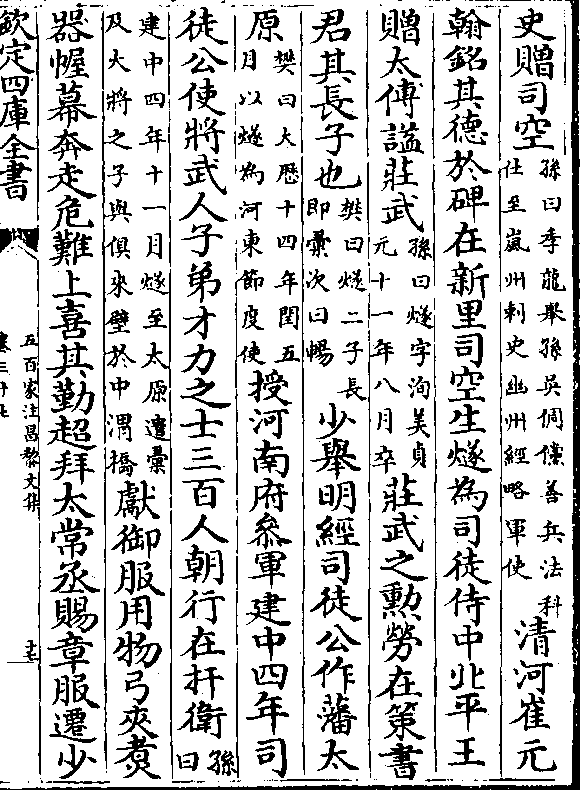 史贈司空孫曰季龍舉孫吳倜儻善兵法科仕至嵐州刺史幽州經略軍使清河崔元
翰銘其德於碑在新里司空生燧為司徒侍中北平王
贈太傅謚莊武孫曰燧字洵美貞元十一年八月卒莊武之勲勞在策書
君其長子也樊曰燧二子長即彚次曰暢少舉明經司徒公作藩太
原樊曰大厯十四年閏五月以燧為河東節度使授河南府叅軍建中四年司
徒公使將武人子弟才力之士三百人朝行在扞衛孫曰
建中四年十一月燧至太原遣彚及大將之子與俱來壁於中渭橋獻御服用物弓夾煑
器幄幕奔走危難上喜其勤超拜太常丞賜章服遷少
欽定四庫全書
五百家注昌黎文集